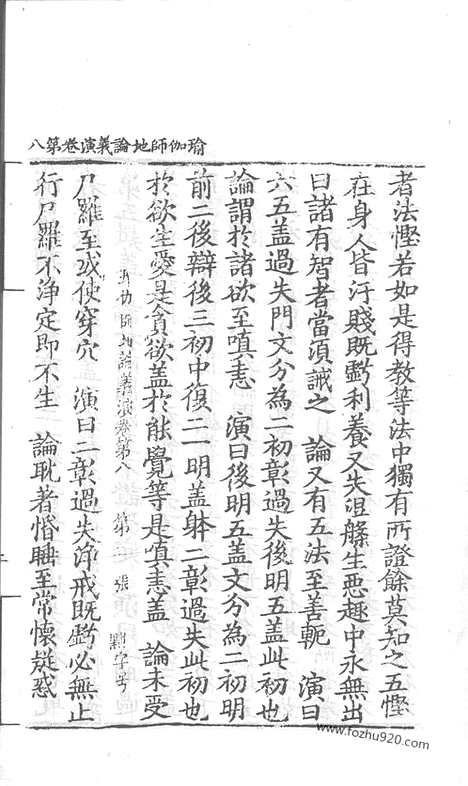 瑜伽師地論義演卷第八
者法慳若如是得教等法中獨有所證餘莫知之五慳
在身人皆汙賤既虧利養又失涅槃生惡趣中永無出
曰諸有智者當須誡之　論又有五法至善軛　演曰
六五盖過失門文分為二初彰過失後明五盖此初也
論謂於諸欲至嗔恚　演曰後明五盖文分為二初明
前二後辯後三初中復二一明盖躰二彰過失此初也
於欲生愛是貪欲盖於能覺等是嗔恚盖　論未受
瑜伽師地論義演卷第八　第　張　字号
尸羅至或使穿穴　演曰二彰過失淨戒既虧必無止
行尸羅不淨定即不生　論耽著惛睡至常懷疑惑
www.fozhu920.com